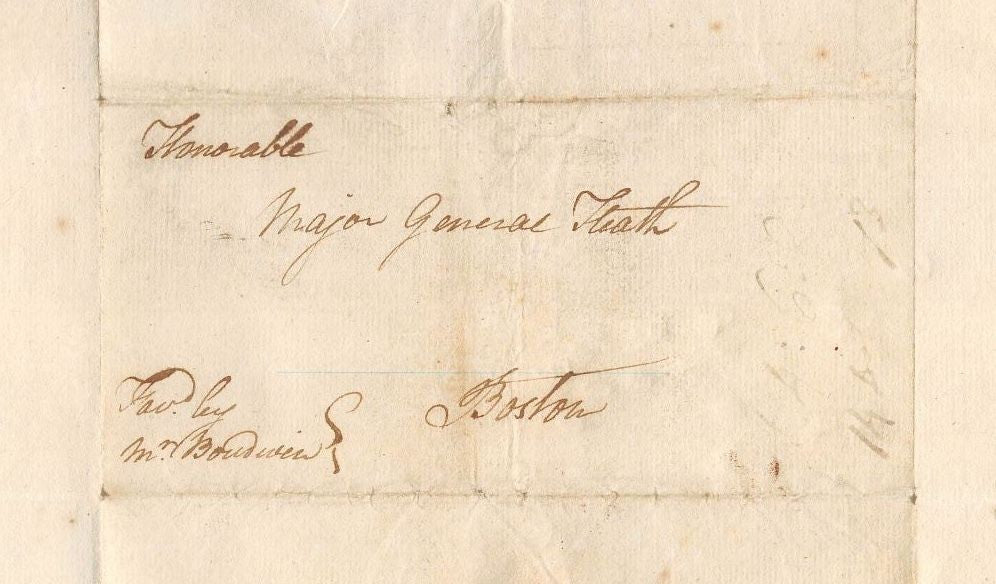 Honorable
Major General Heath
Boston
Favd. by
Mr. Boudwin